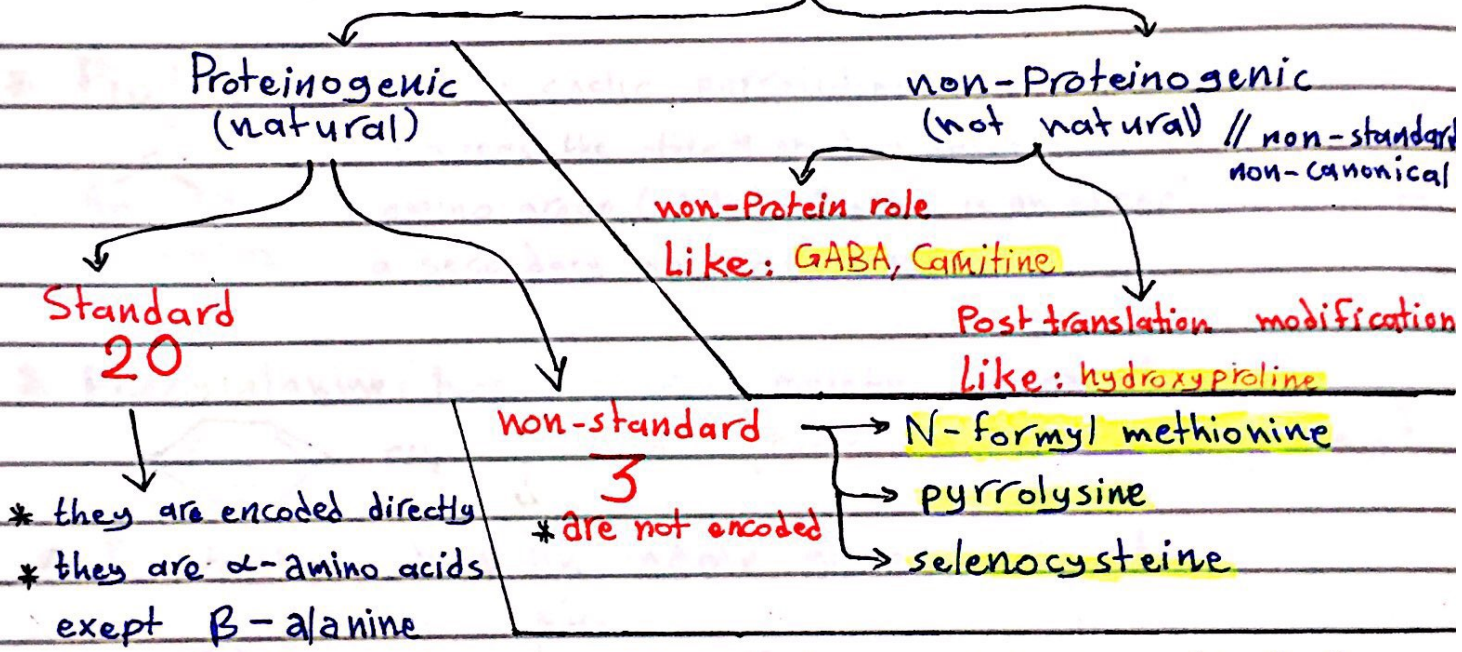 Proteinogenic
(natural)
non-Proteinogenic
(not natural) // non-standard
non-canonical
non-Protein role
Like: GABA, Carnitine
Post translation modification
Like: hydroxyproline
Standard
20
* they are encoded directly
* they are α-amino acids
exept β-alanine
non-standard
3
* are not encoded
N-formyl methionine
pyrrolysine
selenocysteine